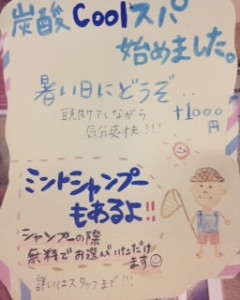 炭酸Coolスパ
始めました。
暑い日にどうぞ...
頭皮ケアしながら
気分爽快!!!
+1000円
ミントシャンプー
もあるよ!!
シャンプーの際
無料でお選びいただけ
ます
詳しくはスタッフまで!!!